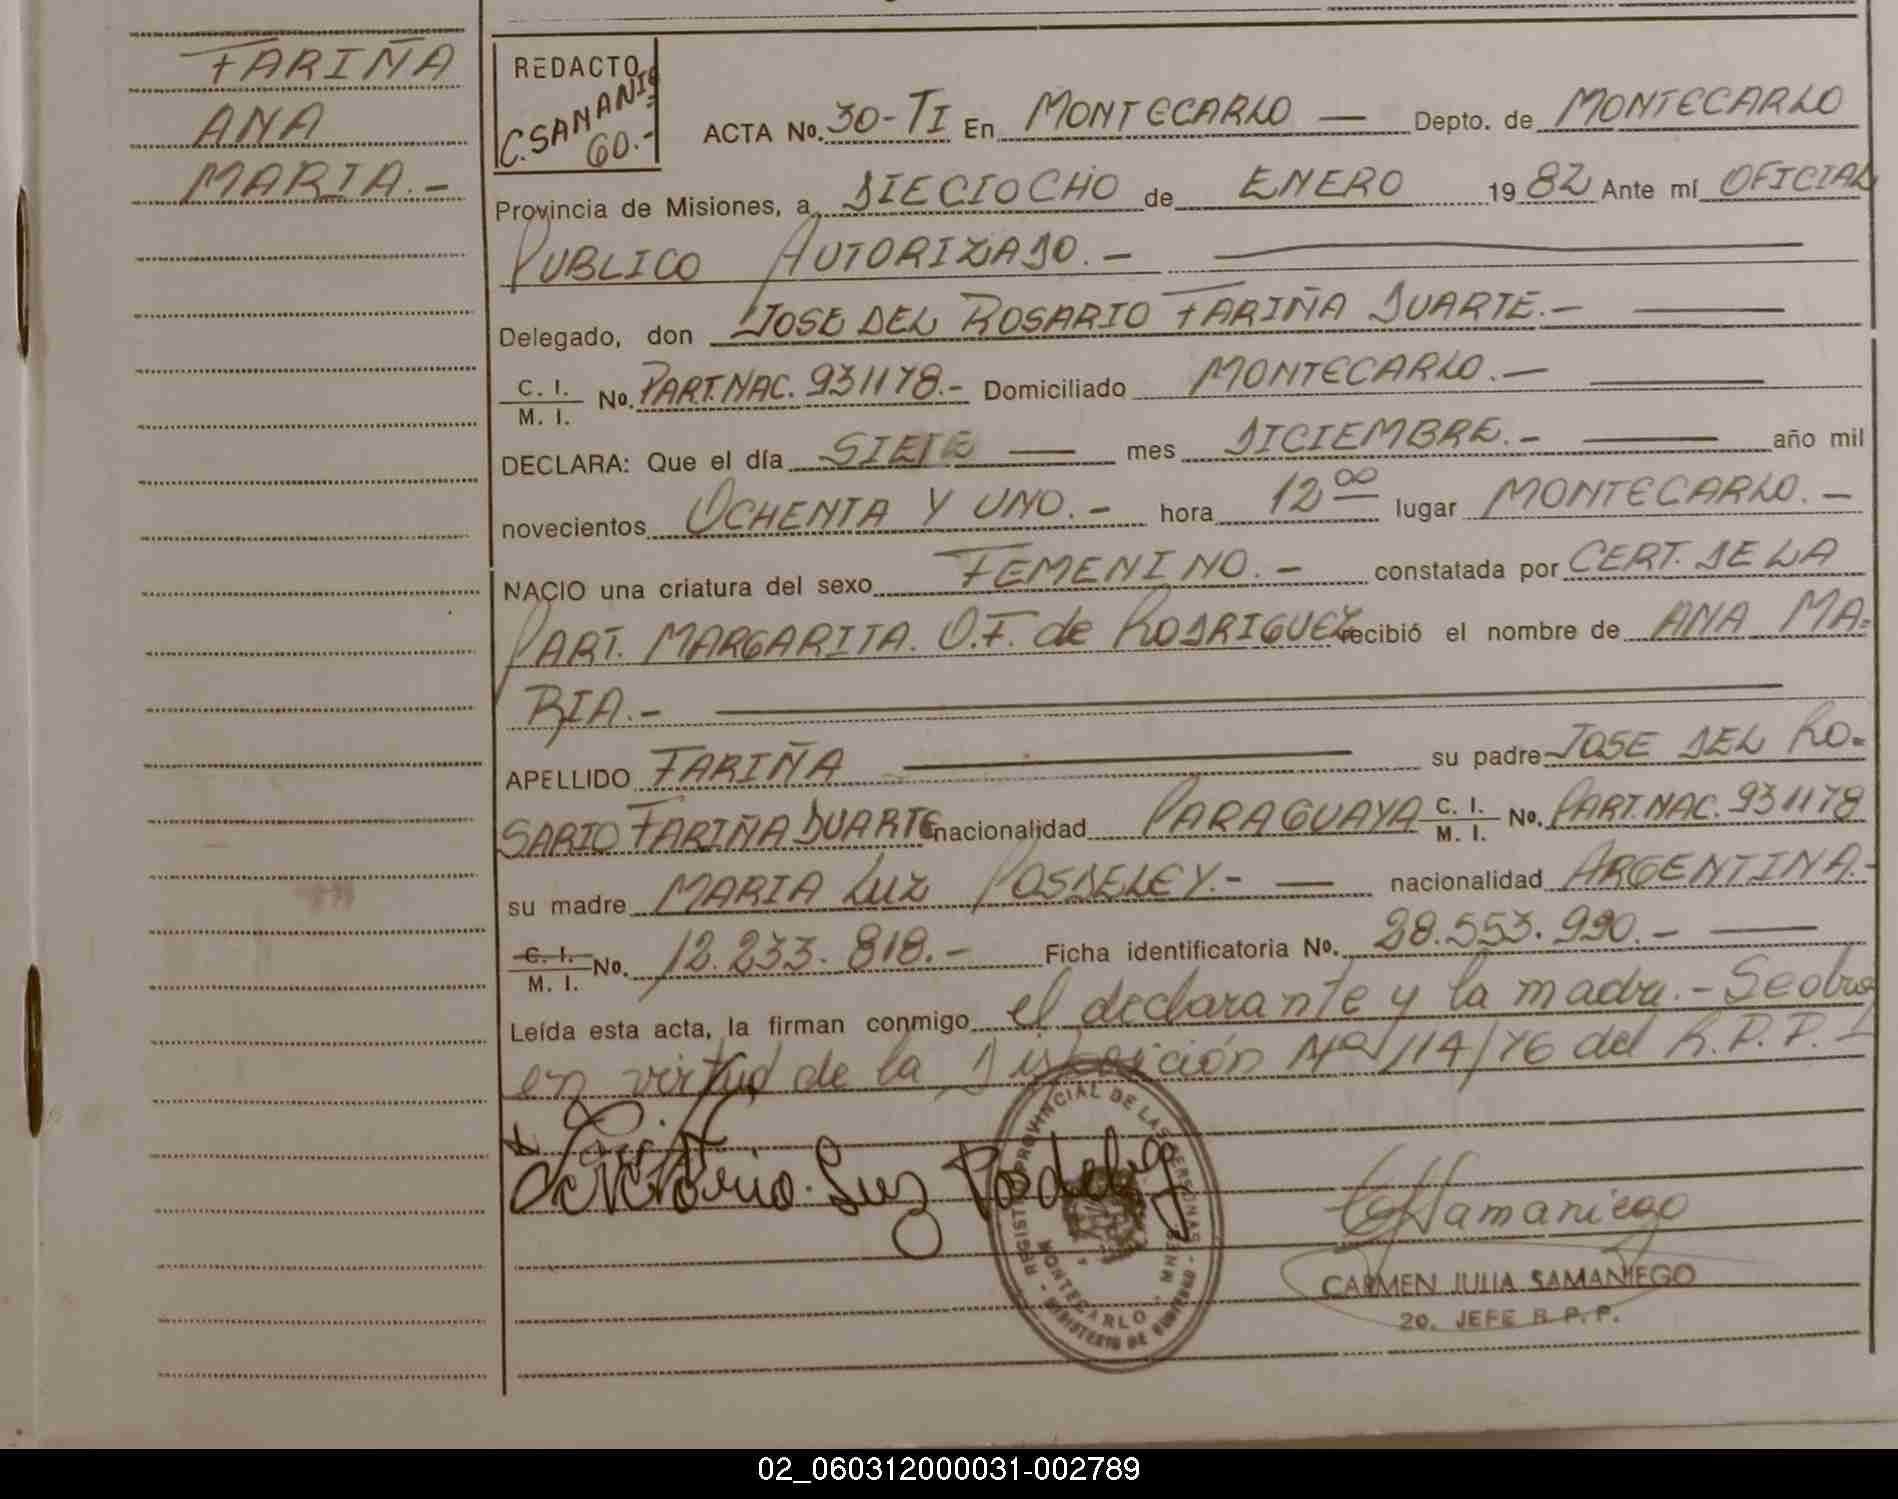 FARIÑA
ANA
MARIA.-
REDACTO
C. SAMANIE
60.-
ACTA No. 30-TI En MONTECARLO — Depto. de MONTECARLO
Provincia de Misiones, a DIECIOCHO de ENERO 19 82 Ante mí OFICIAL
PUBLICO AUTORIZADO.-
Delegado, don JOSE DEL ROSARIO FARIÑA DUARTE.-
C. I.
M. I. No. PART.NAC. 931178.- Domiciliado MONTECARLO.-
DECLARA: Que el día SIETE — mes DICIEMBRE.- año mil
novecientos OCHENTA Y UNO.- hora 12 00 lugar MONTECARLO.-
NACIO una criatura del sexo FEMENINO.- constatada por CERT. DE LA
PART. MARGARITA. O.F. de RODRIGUEZ recibió el nombre de ANA MA=
RIA.-
APELLIDO FARIÑA su padre JOSE DEL RO=
SARIO FARIÑA DUARTE nacionalidad PARAGUAYA C. I.
M. I. No. PART.NAC. 931178
su madre MARIA LUZ POSDELEY.- — nacionalidad ARGENTINA.-
C. I.
M. I. No. 12.233.818.- Ficha identificatoria No. 28.553.990.-
Leída esta acta, la firman conmigo el declarante y la madre.- Se obra
en virtud de la Disposición Nº 114/76 del R.P.P.
Luz Posdeley
REGISTRO PROVINCIAL DE LAS PERSONAS
MONTECARLO - MNES
MINISTERIO DE GOBIERNO
CJSamaniego
CARMEN JULIA SAMANIEGO
2o. JEFE R.P.P.
02_060312000031-002789